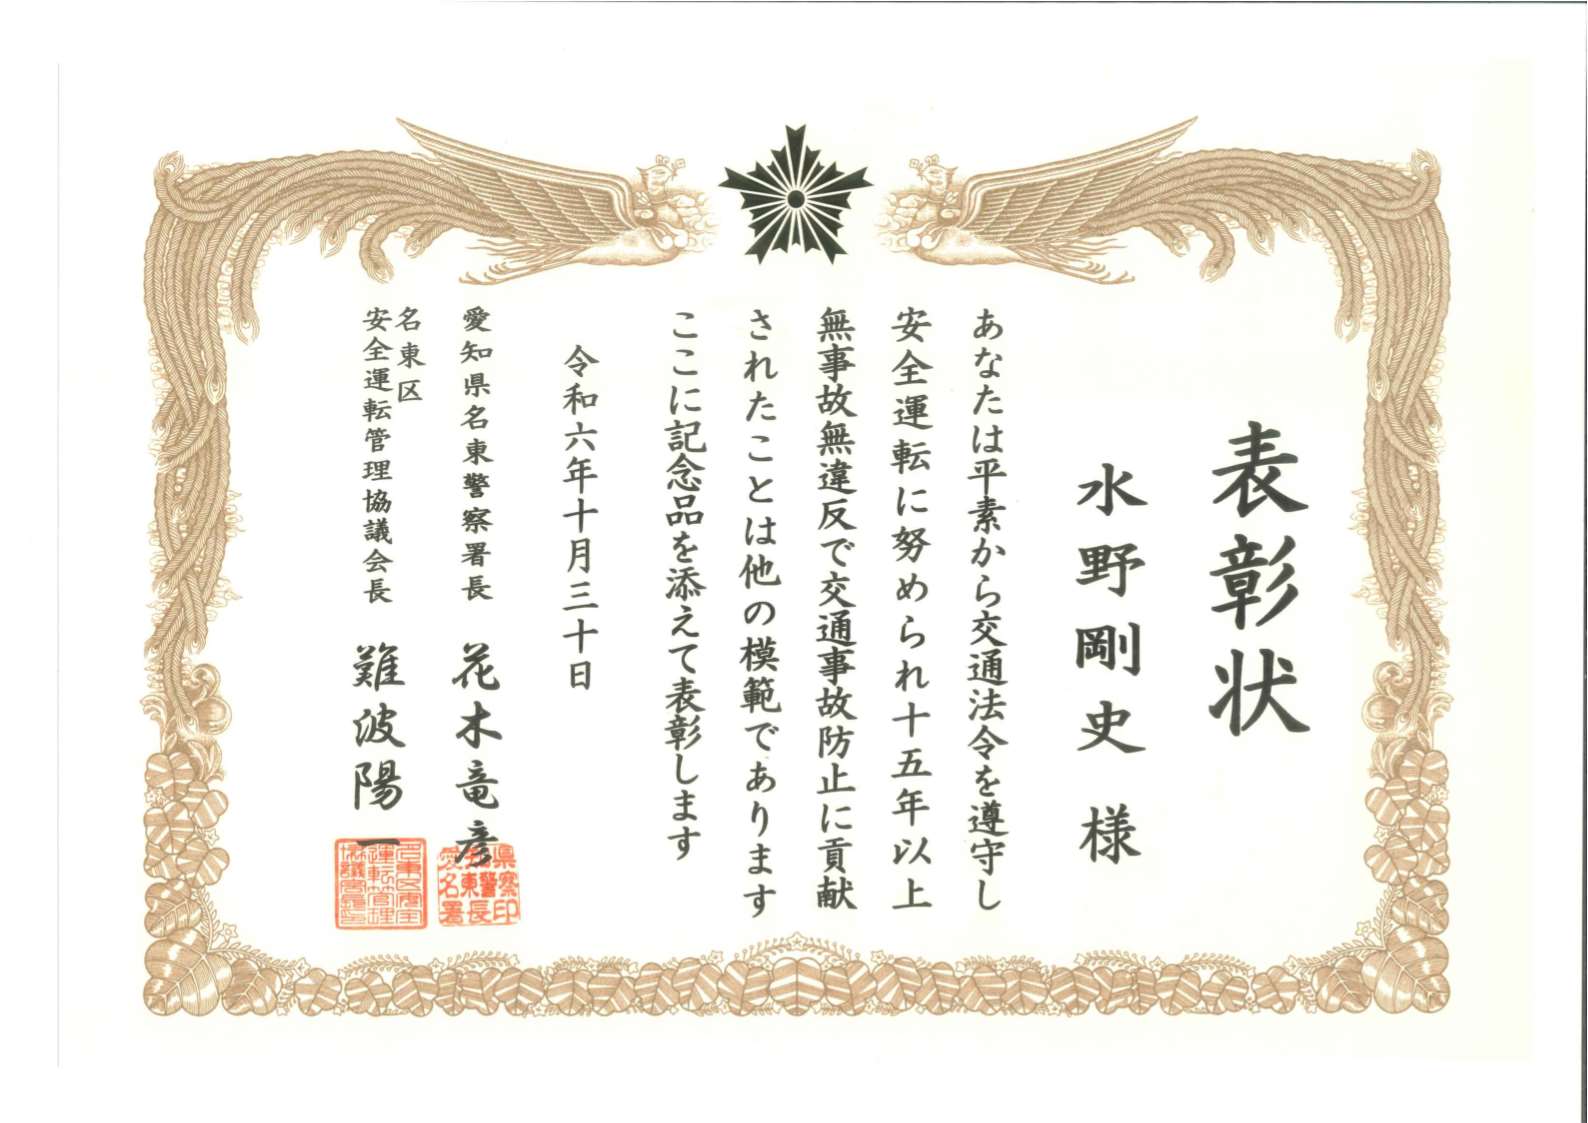 表彰状
水野剛史 様
あなたは平素から交通法令を遵守し
安全運転に努められ十五年以上
無事故無違反で交通事故防止に貢献
されたことは他の模範であります
ここに記念品を添えて表彰します
令和六年十月三十日
愛知県名東警察署長 花木竜彦
名東区
安全運転管理協議会長 難波陽一